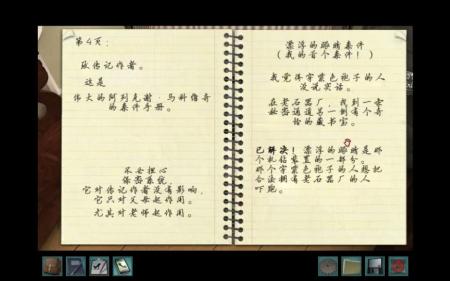 第4页:
致传记作者。
这是
伟大的阿列克谢·马科僧奇
的案件手册。
不要担心
保密系统,
它对传记作者没有影响,
它只对父母起作用。
尤其对老师起作用。
漂浮的眼睛案件
(我的首个案件!)
我觉得穿紫色袍子的人
没说实话。
在老石器厂,我到一会
秘密通道另一侧有个奇
怪的藏书室。
已解决!漂浮的眼睛是那
个机钻装置的一部分。
那个穿紫色袍子的人想把
合法拥有老石器厂的人
吓跑。